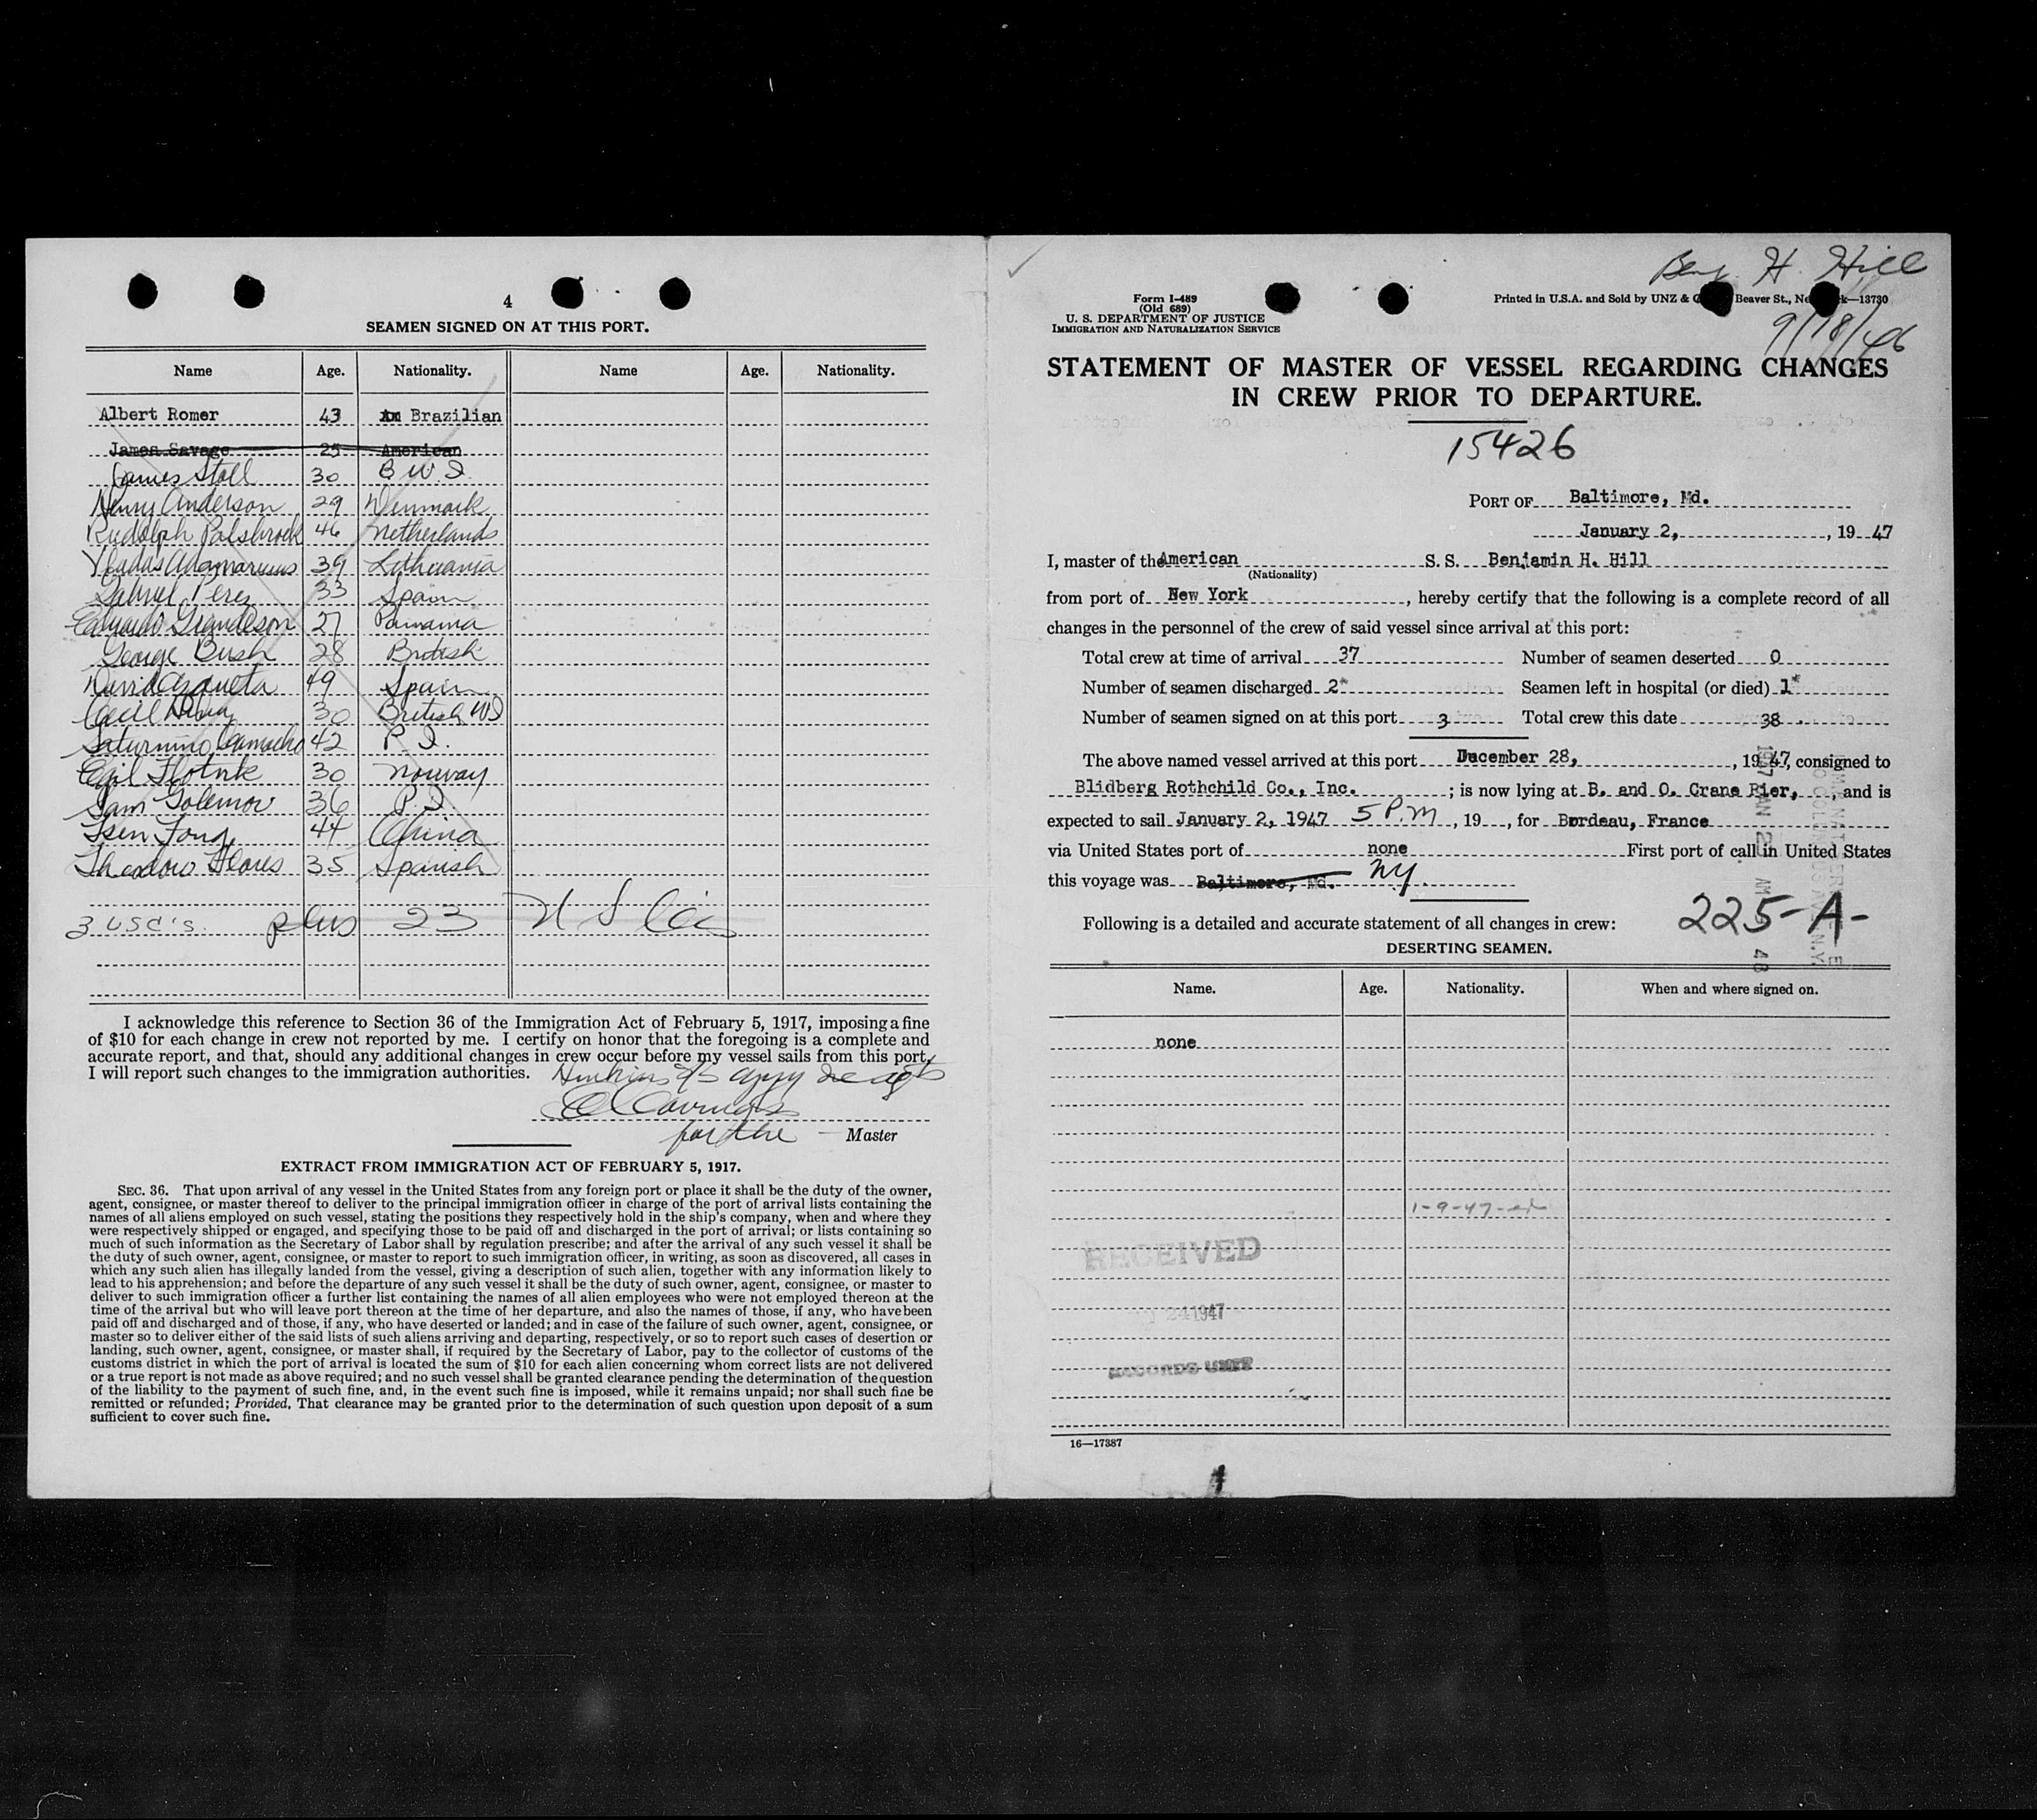 4
SEAMEN SIGNED ON AT THIS PORT.
Name Age. Nationality. Name Age. Nationality.
Albert Romer 43 Brazilian
James Savage 25 American
James Stoll 30 B W. I.
Henry Anderson 29 Denmark
Rudolph Palsbrook 46 Netherlands
39 Lithuania
Gabriel Perez 33 Spain
27 Panama
George Bush 28 British
David Azqueta 49 Spain
Cecil 30 British WI
Saturnino Camacho 42 P. I.
Egil 30 Norway
Sam 36 P. I.
Tsen Fong 44 China
Theodoro Flores 35 Spanish
3 USC's. plus 23 U S
I acknowledge this reference to Section 36 of the Immigration Act of February 5, 1917, imposing a fine
of $10 for each change in crew not reported by me. I certify on honor that the foregoing is a complete and
accurate report, and that, should any additional changes in crew occur before my vessel sails from this port,
I will report such changes to the immigration authorities.
for the — Master
EXTRACT FROM IMMIGRATION ACT OF FEBRUARY 5, 1917.
SEC. 36. That upon arrival of any vessel in the United States from any foreign port or place it shall be the duty of the owner,
agent, consignee, or master thereof to deliver to the principal immigration officer in charge of the port of arrival lists containing the
names of all aliens employed on such vessel, stating the positions they respectively hold in the ship's company, when and where they
were respectively shipped or engaged, and specifying those to be paid off and discharged in the port of arrival; or lists containing so
much of such information as the Secretary of Labor shall by regulation prescribe; and after the arrival of any such vessel it shall be
the duty of such owner, agent, consignee, or master to report to such immigration officer, in writing, as soon as discovered, all cases in
which any such alien has illegally landed from the vessel, giving a description of such alien, together with any information likely to
lead to his apprehension; and before the departure of any such vessel it shall be the duty of such owner, agent, consignee, or master to
deliver to such immigration officer a further list containing the names of all alien employees who were not employed thereon at the
time of the arrival but who will leave port thereon at the time of her departure, and also the names of those, if any, who have been
paid off and discharged and of those, if any, who have deserted or landed; and in case of the failure of such owner, agent, consignee, or
master so to deliver either of the said lists of such aliens arriving and departing, respectively, or so to report such cases of desertion or
landing, such owner, agent, consignee, or master shall, if required by the Secretary of Labor, pay to the collector of customs of the
customs district in which the port of arrival is located the sum of $10 for each alien concerning whom correct lists are not delivered
or a true report is not made as above required; and no such vessel shall be granted clearance pending the determination of the question
of the liability to the payment of such fine, and, in the event such fine is imposed, while it remains unpaid; nor shall such fine be
remitted or refunded; Provided, That clearance may be granted prior to the determination of such question upon deposit of a sum
sufficient to cover such fine.
Benj. H. Hill
9/18/46
Form I-489
(Old 689)
U. S. DEPARTMENT OF JUSTICE
IMMIGRATION AND NATURALIZATION SERVICE
Printed in U.S.A. and Sold by UNZ & Beaver St., —13730
STATEMENT OF MASTER OF VESSEL REGARDING CHANGES
IN CREW PRIOR TO DEPARTURE.
15426
PORT OF Baltimore, Md.
January 2, , 19 47
I, master of the American S. S. Benjamin H. Hill
(Nationality)
from port of New York , hereby certify that the following is a complete record of all
changes in the personnel of the crew of said vessel since arrival at this port:
Total crew at time of arrival 37 Number of seamen deserted 0
Number of seamen discharged 2 Seamen left in hospital (or died) 1
Number of seamen signed on at this port 3 Total crew this date 38
The above named vessel arrived at this port December 28, , 19 47, consigned to
Blidberg Rothchild Co., Inc. ; is now lying at B. and O. Crane Pier, , and is
expected to sail January 2, 1947 5 P.M , 19 , for Bordeau, France
via United States port of none First port of call in United States
this voyage was Baltimore, Md. NY.
Following is a detailed and accurate statement of all changes in crew: 225-A-
DESERTING SEAMEN.
Name. Age. Nationality. When and where signed on.
none
1-9-47
RECEIVED
24 1947
RECORDS UNIT
16—17387